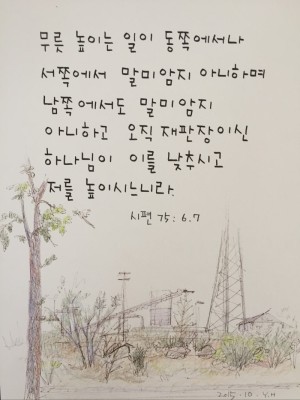 무릇 높이는 일이 동쪽에서나
서쪽에서 말미암지 아니하며
남쪽에서도 말미암지
아니하고 오직 재판장이신
하나님이 이를 낮추시고
저를 높이시느니라.
시편 75: 6.7